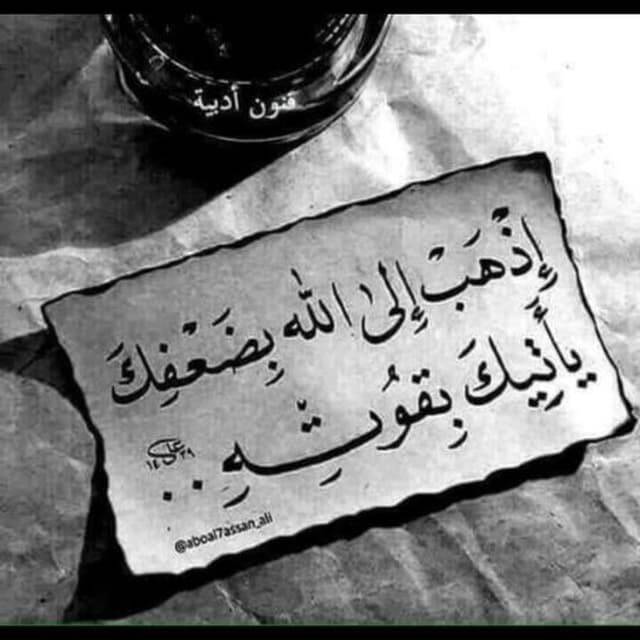 فنون أدبية
إِذْهَبْ إِلى الله بِضَعْفِكَ
يَأتِيكَ بِقوُتِهِ ..
علي
١٤٣٩
@aboal7assan_ali